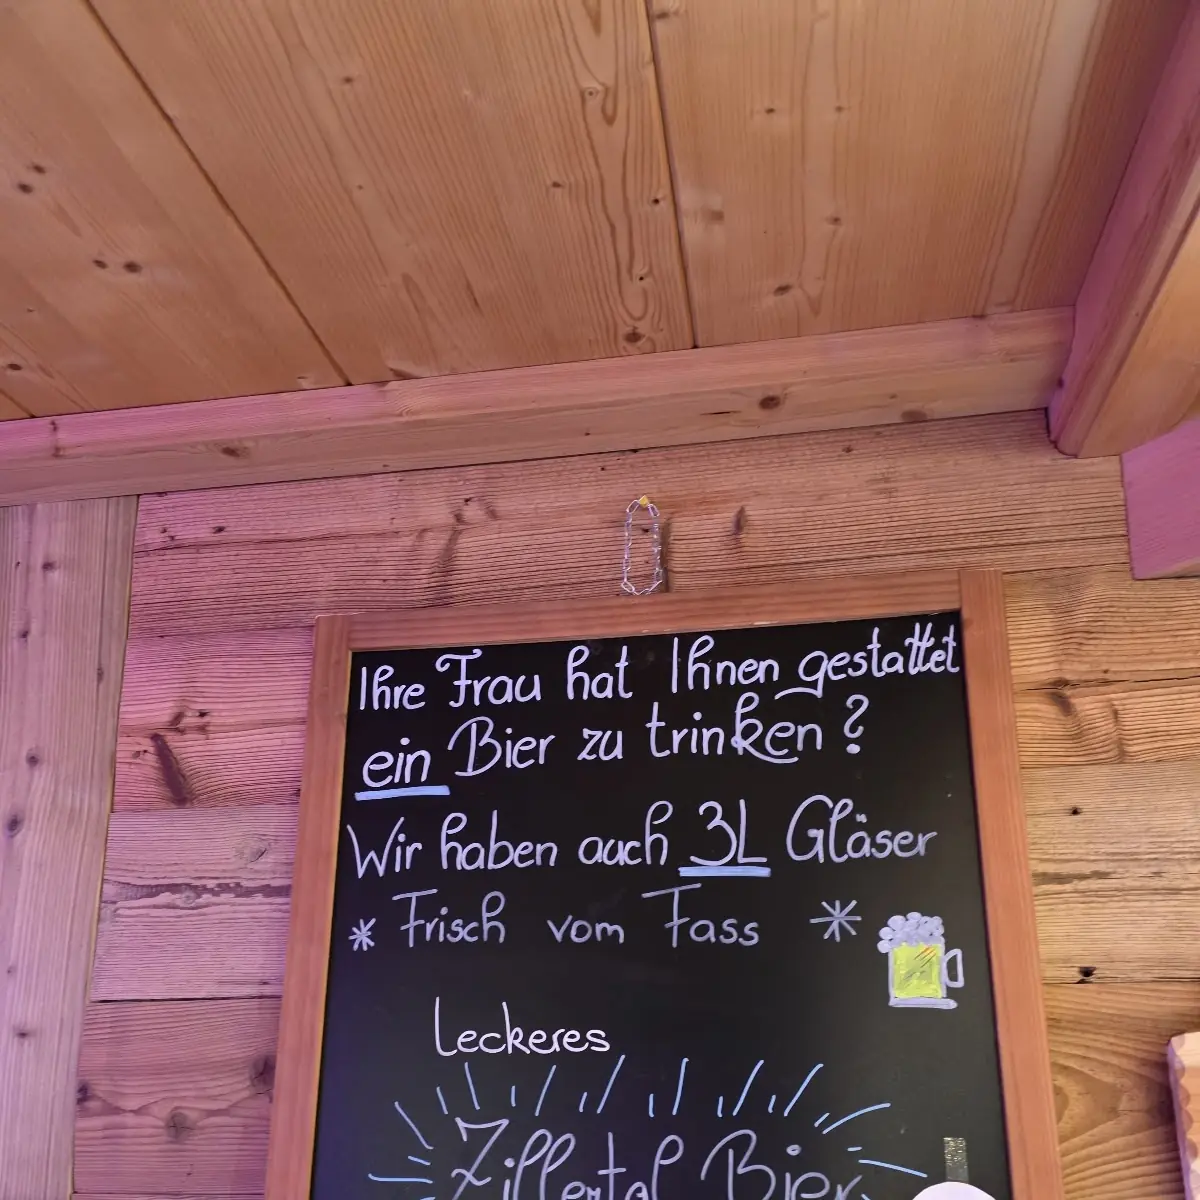 Ihre Frau hat Ihnen gestattet
ein Bier zu trinken?
Wir haben auch 3L Gläser
* Frisch vom Fass *
Leckeres
Zillertal Bier